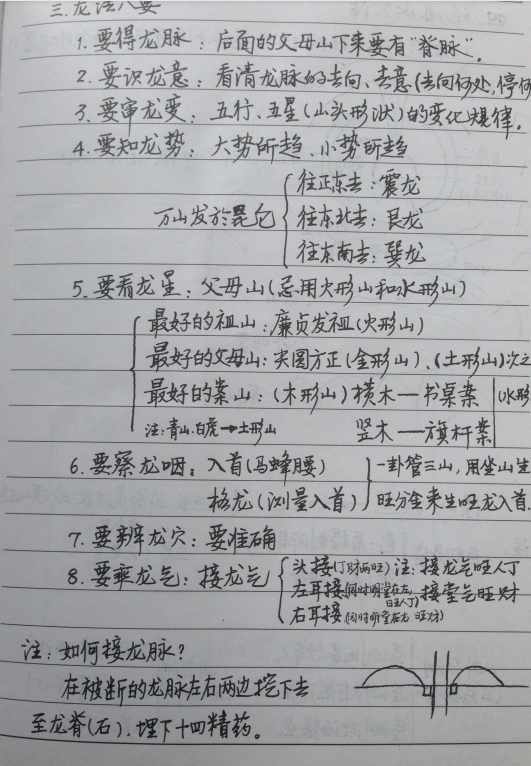 三.龙法八要
1.要得龙脉：后面的父母山下来要有“脊脉”。
2.要识龙意：看清龙脉的去向、去意(去向何处,停何
3.要审龙变：五行、五星(山头形状)的变化规律。
4.要知龙势：大势所趋、小势所趋
往正东去：震龙
万山发於昆仑 往东北去：艮龙
往东南去：巽龙
5.要看龙星：父母山(忌用火形山和水形山)
最好的祖山：廉贞发祖(火形山)
最好的父母山：尖圆方正(金形山)、(土形山)次之
最好的案山：(木形山)横木—书桌案 (水形
注:青山.白虎→土形山 竖木—旗杆案
6.要察龙咽：入首(马蜂腰) 一卦管三山,用坐山生
格龙(测量入首) 旺分金来生旺龙入首.
7.要辨龙穴：要准确
8.要乘龙气：接龙气 头接(丁财两旺)注：接龙气旺人丁
左耳接(同时明堂在左,旺人丁)接堂气旺财
右耳接(同时明堂在右 旺财)
注：如何接龙脉？
在被断的龙脉左右两边挖下去
至龙脊(石).埋下十四精药。